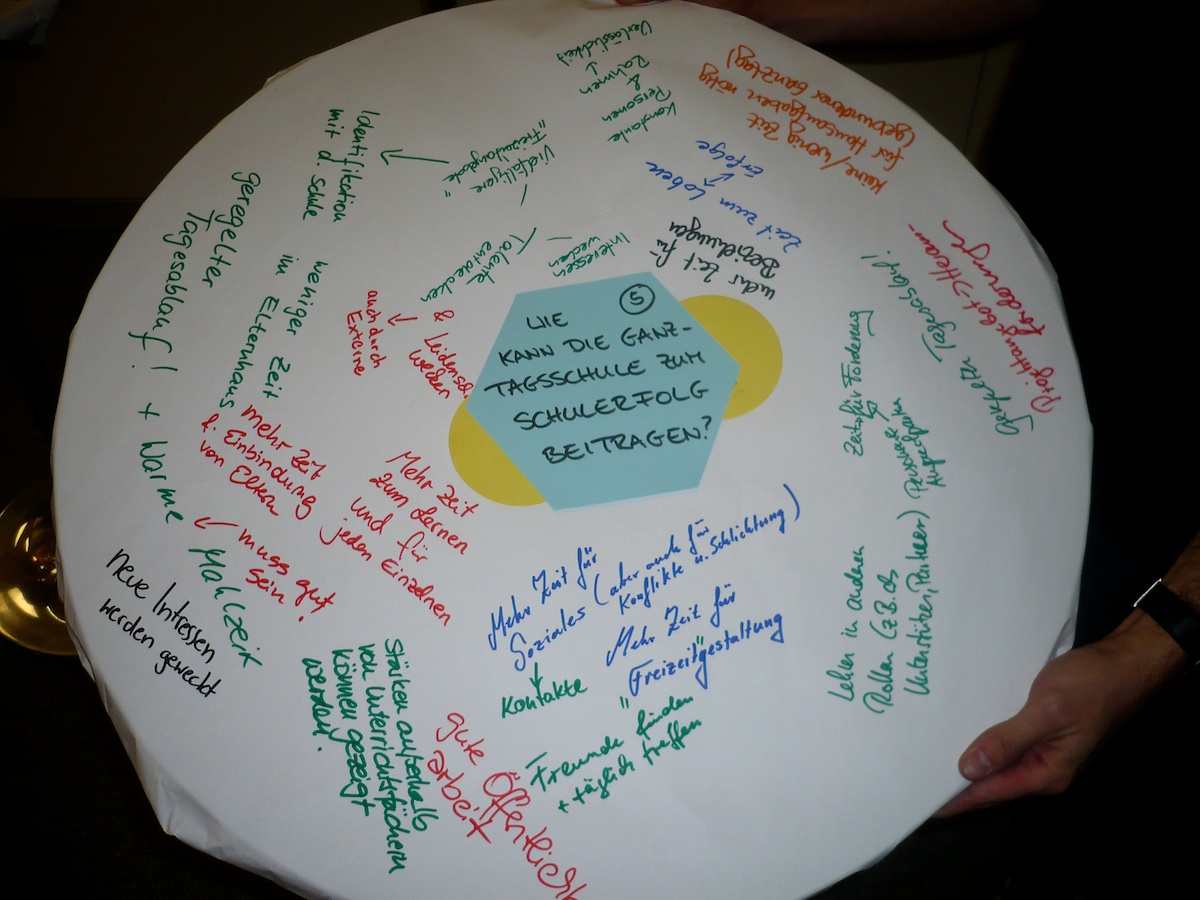 5
WIE
KANN DIE GANZ-
TAGSSCHULE ZUM
SCHULERFOLG
BEITRAGEN?
Verlässlichkeit
↓
Rahmen
&
Personen
Konstante
keine/wenig Zeit
für Hausaufgaben nötig
(gebundener Ganztag!)
Zeit zum Loben
↓
Erfolge
mehr Zeit für
Beziehungen
Interessen
wecken
Talente
entdecken
Vielfältigere
"Freizeitangebote"
Identifikation
mit d. Schule
geregelter
Tagesablauf! + Warme
Mahlzeit
weniger Zeit
im Elternhaus
& Leidensch
wecken
auch durch
Externe
mehr Zeit
f. Einbindung
von Eltern
Mehr Zeit
zum Lernen
und für
jeden Einzelnen
muss gut
sein.
Neue Intressen
werden geweckt
Stärken außerhalb
von Unterrichtsfächern
können gezeigt
werden.
gute Öffentlich
arbeit
Mehr Zeit für
Soziales (aber auch für
Konflikte u. Schlichtung)
Kontakte
Mehr Zeit für
"Freizeit"gestaltung
Freunde finden
+ täglich treffen
Lehrer in anderen
Rollen (z.B. als
Unterstützer, Partner)
Zeit für Förderung
Personen
Geregelter Tagesablauf!
Projektangebot → Heraus-
forderungen